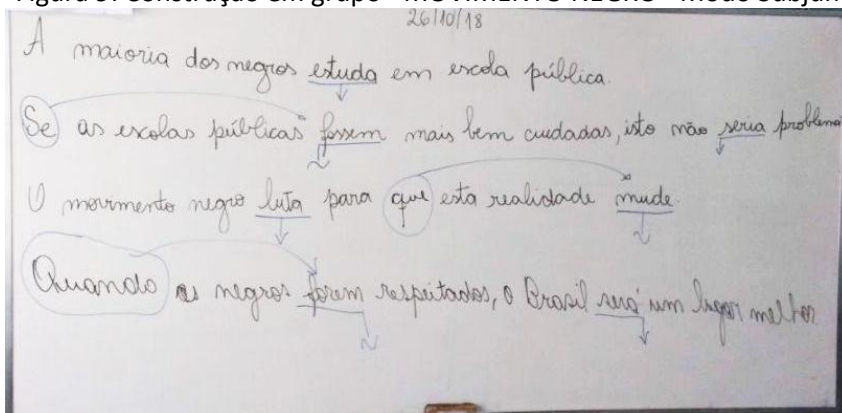 Figura 5. Construção em grupo - MOVIMENTO NEGRO - Modo Subjun
26/10/18
A maioria dos negros estuda em escola pública.
Se as escolas públicas fossem mais bem cuidadas, isto não seria problema
O movimento negro luta para que esta realidade mude.
Quando os negros forem respeitados, o Brasil será um lugar melhor